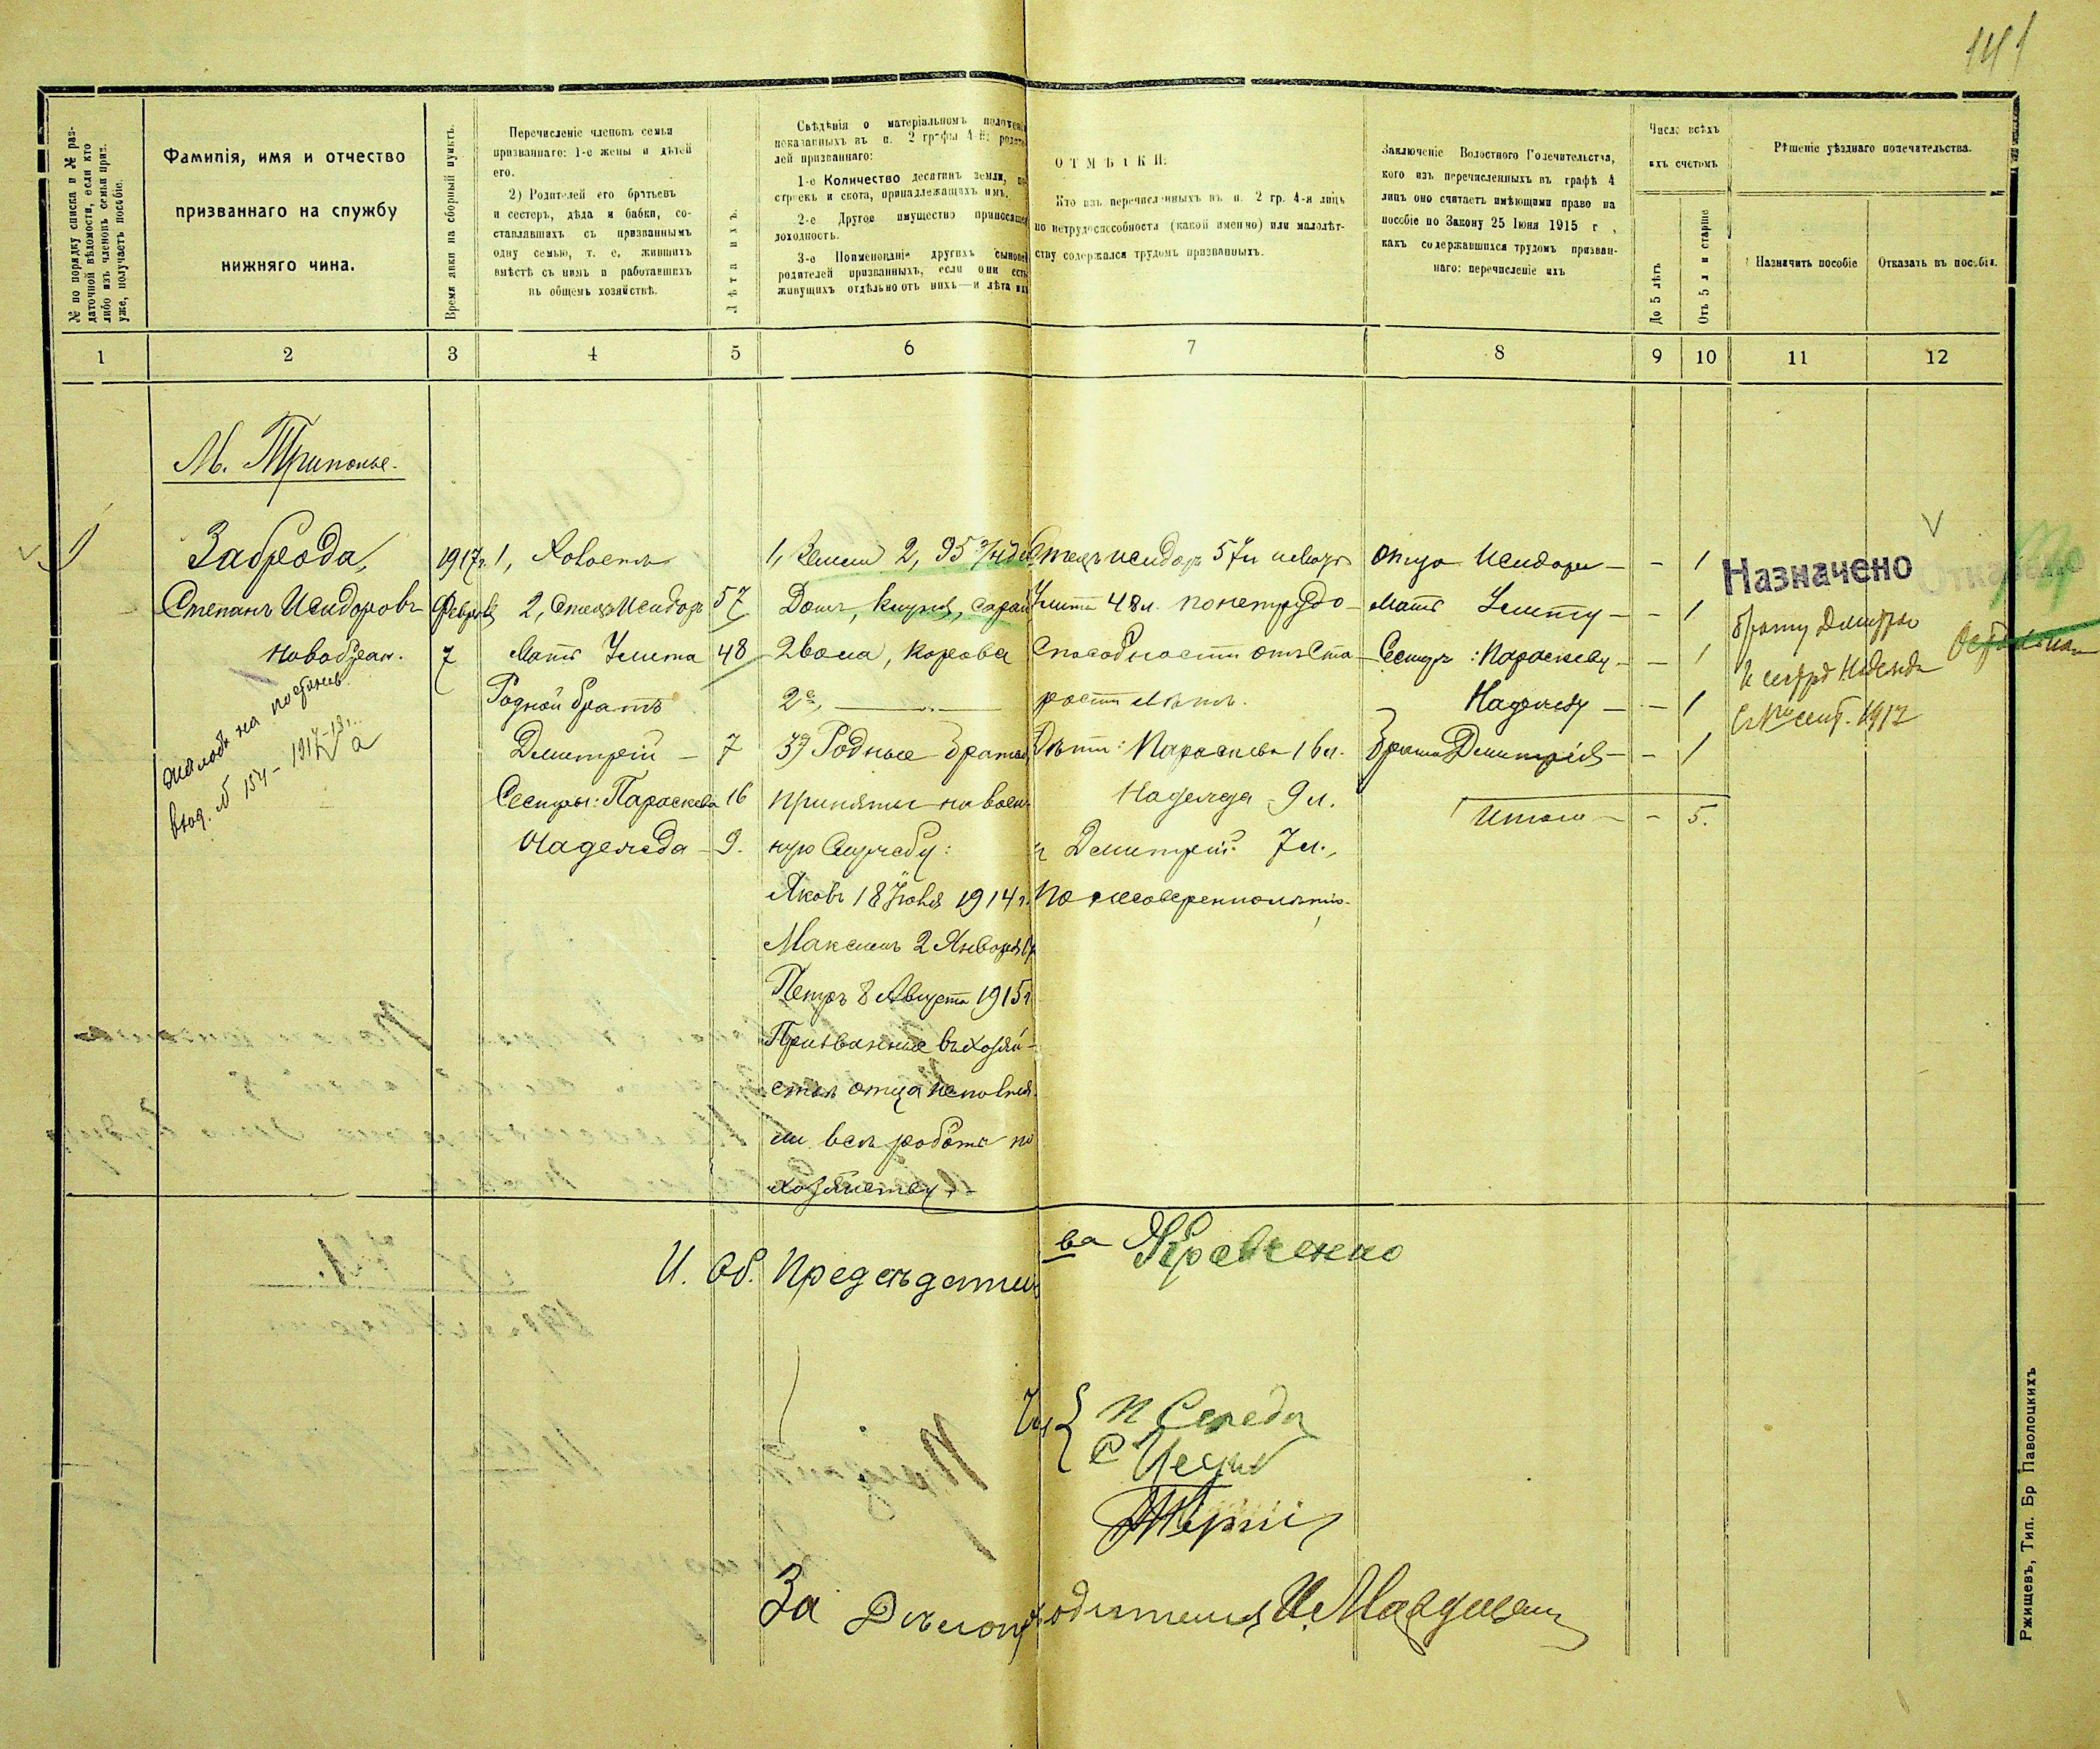 141
№ по порядку списка и № раз-
даточной вѣдомости, если кто
либо изъ членовъ семьи приз.
уже, получаетъ пособіе.
Фамилія, имя и отчество
призваннаго на службу
нижняго чина.
Время явки на сборный пунктъ.
Перечисленіе членовъ семьи
призваннаго: 1-е жены и дѣтей
его.
2) Родителей его братьевъ
и сестеръ, дѣда и бабки, со-
ставлявшихъ съ призваннымъ
одну семью, т. е. жившихъ
вмѣстѣ съ нимъ и работавшихъ
въ общемъ хозяйствѣ.
Лѣта ихъ.
Свѣдѣнія о матеріальномъ положеніи
показанныхъ въ п. 2 графы 4-й: родите-
лей призваннаго:
1-е Количество десятинъ земли, по-
строекъ и скота, принадлежащихъ имъ.
2-е Другое имущество приносящее
доходность.
3-е Поименованіе другихъ сыновей
родителей призванныхъ, если они есть
живущихъ отдѣльно отъ нихъ—и лѣта ихъ
ОТМѢТКИ:
Кто изъ перечисленныхъ въ п. 2 гр. 4-я лицъ
по нетрудоспособности (какой именно) или малолѣт-
ству содержался трудомъ призванныхъ.
Заключеніе Волостного Попечительства,
кого изъ перечисленныхъ въ графѣ 4
лицъ оно считаетъ имѣющими право на
пособіе по Закону 25 Іюня 1915 г.,
какъ содержавшихся трудомъ призван-
наго: перечисленіе ихъ
Число всѣхъ
ихъ счетомъ
До 5 лѣтъ
Отъ 5 л и старше
Рѣшеніе уѣзднаго попечительства.
Назначить пособіе
Отказать въ пособіи.
1 2 3 4 5 6 7 8 9 10 11 12
М. Триполье.
1)
Заброда,
Степанъ Исидоровъ
новобран.
жалоба на
вход. № 154 - 1917
1917г.
Феврал
7
1, Холостъ
2, Отецъ Исидоръ 57
Мать Улита 48
Родной братъ
Димитрій - 7
Сестры: Параскева 16
Надежда - 9.
1, Земли 2, 95
Домъ, клуня, сарай
2 вола, корова
2е,
3) Родные братья
приняты на воен-
ную Службу:
Яковъ 18 Іюля 1914г.
Максимъ 2 Января
Петръ 8 Августа 1915г
Призванные въ хозяй-
ствѣ отца исполня-
ли всѣ работы по
хозяйству.
Отецъ Исидоръ 57л
Улита 48л. по нетрудо-
способности отъ ста-
рости лѣтъ.
Дѣти: Параскева 16л.
Надежда 9л.
и Димитрій 7л.,
по несовершеннолѣтію.
Отца Исидора - - 1
Мать Улиту - - 1
Сестръ: Параскеву - - 1
Надежду - - 1
Брата Димитрія - - 1
Итого - - 5.
Назначено
брату Димитрію
и сестрѣ Надежде
сент. 1917
Отказано
Остальным
И. Об. Предсѣдателя
Кравченко
П Середа
За Дѣлопроизводителя И.
Ржищевъ, Тип. Бр Паволоцкихъ